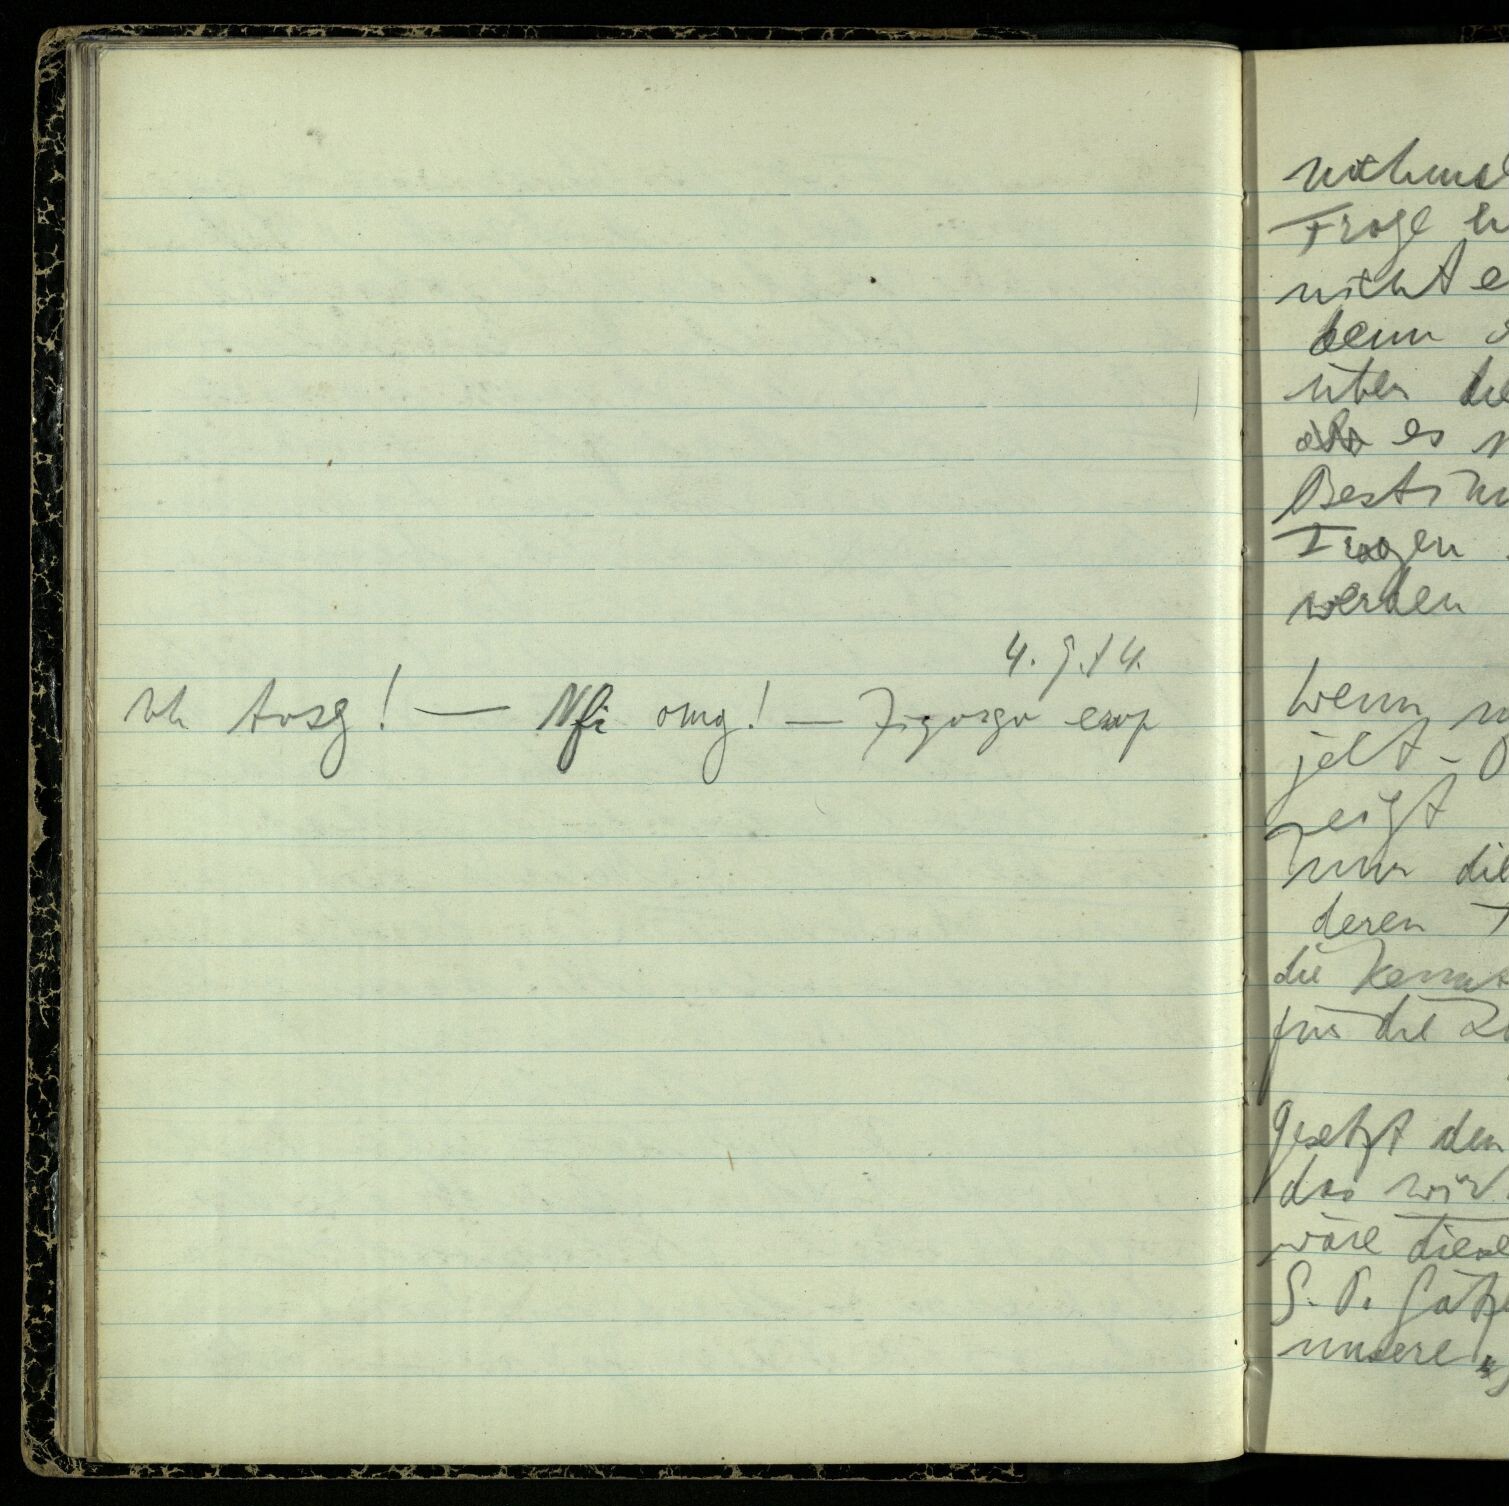 4.9.14.
Vh tvsg! — Mfi nfg! — Ziyvrgv ervo
Frage
nicht e
denn
über die
es
Bestim
Fragen
werden
Wenn
jekt-P
zeigt
Nur die
deren
die Kennt
für die
Gesetzt den
das wir
wäre diese
S. P. Sätze
unsere „